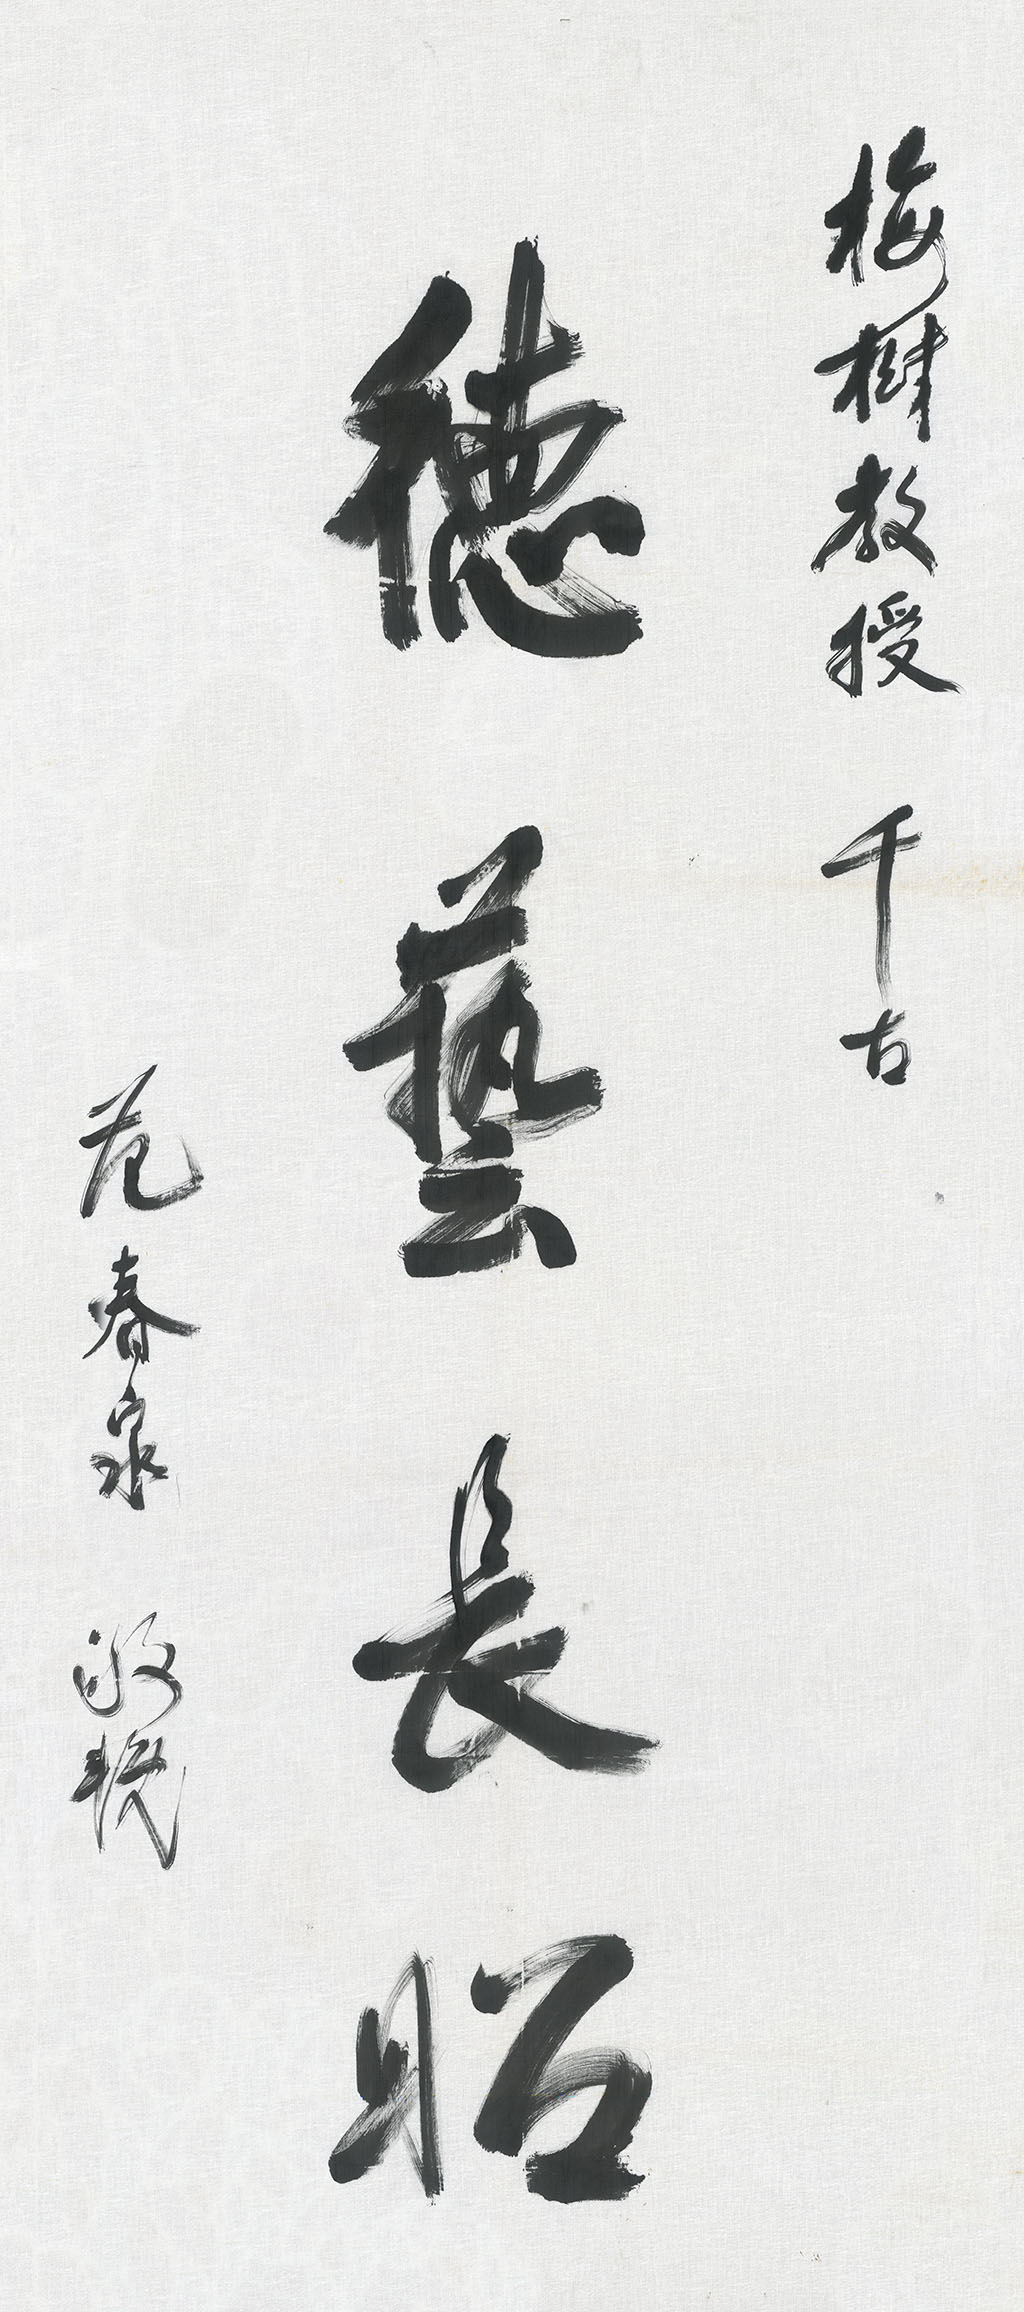 梅樹教授 千古
德藝長昭
范春泉 敬挽